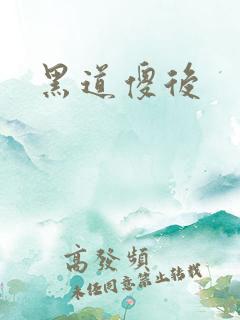 黑道傻後
高發頻
未經同意禁止轉載